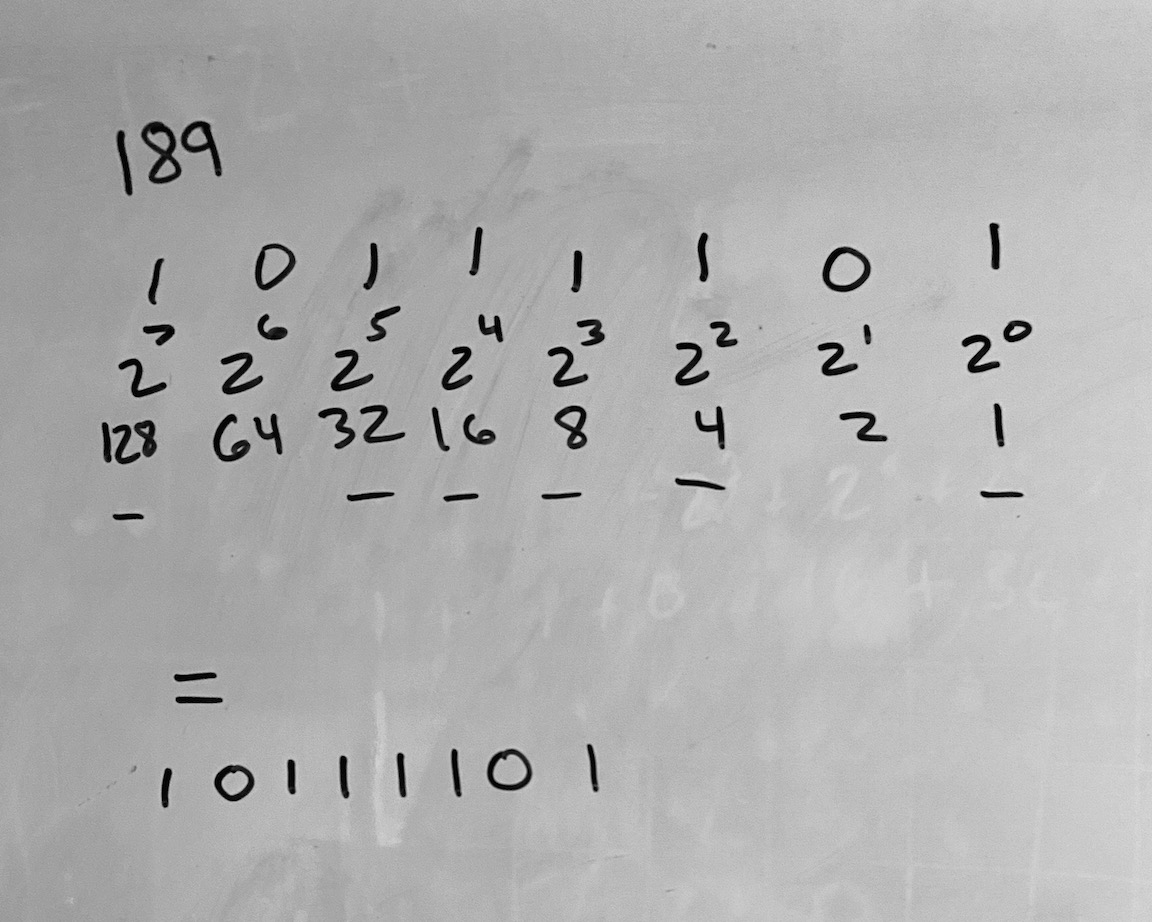 189
1 0 1 1 1 1 0 1
2⁷ 2⁶ 2⁵ 2⁴ 2³ 2² 2¹ 2⁰
128 64 32 16 8 4 2 1
_ _ _ _ _ _
=
1 0 1 1 1 1 0 1